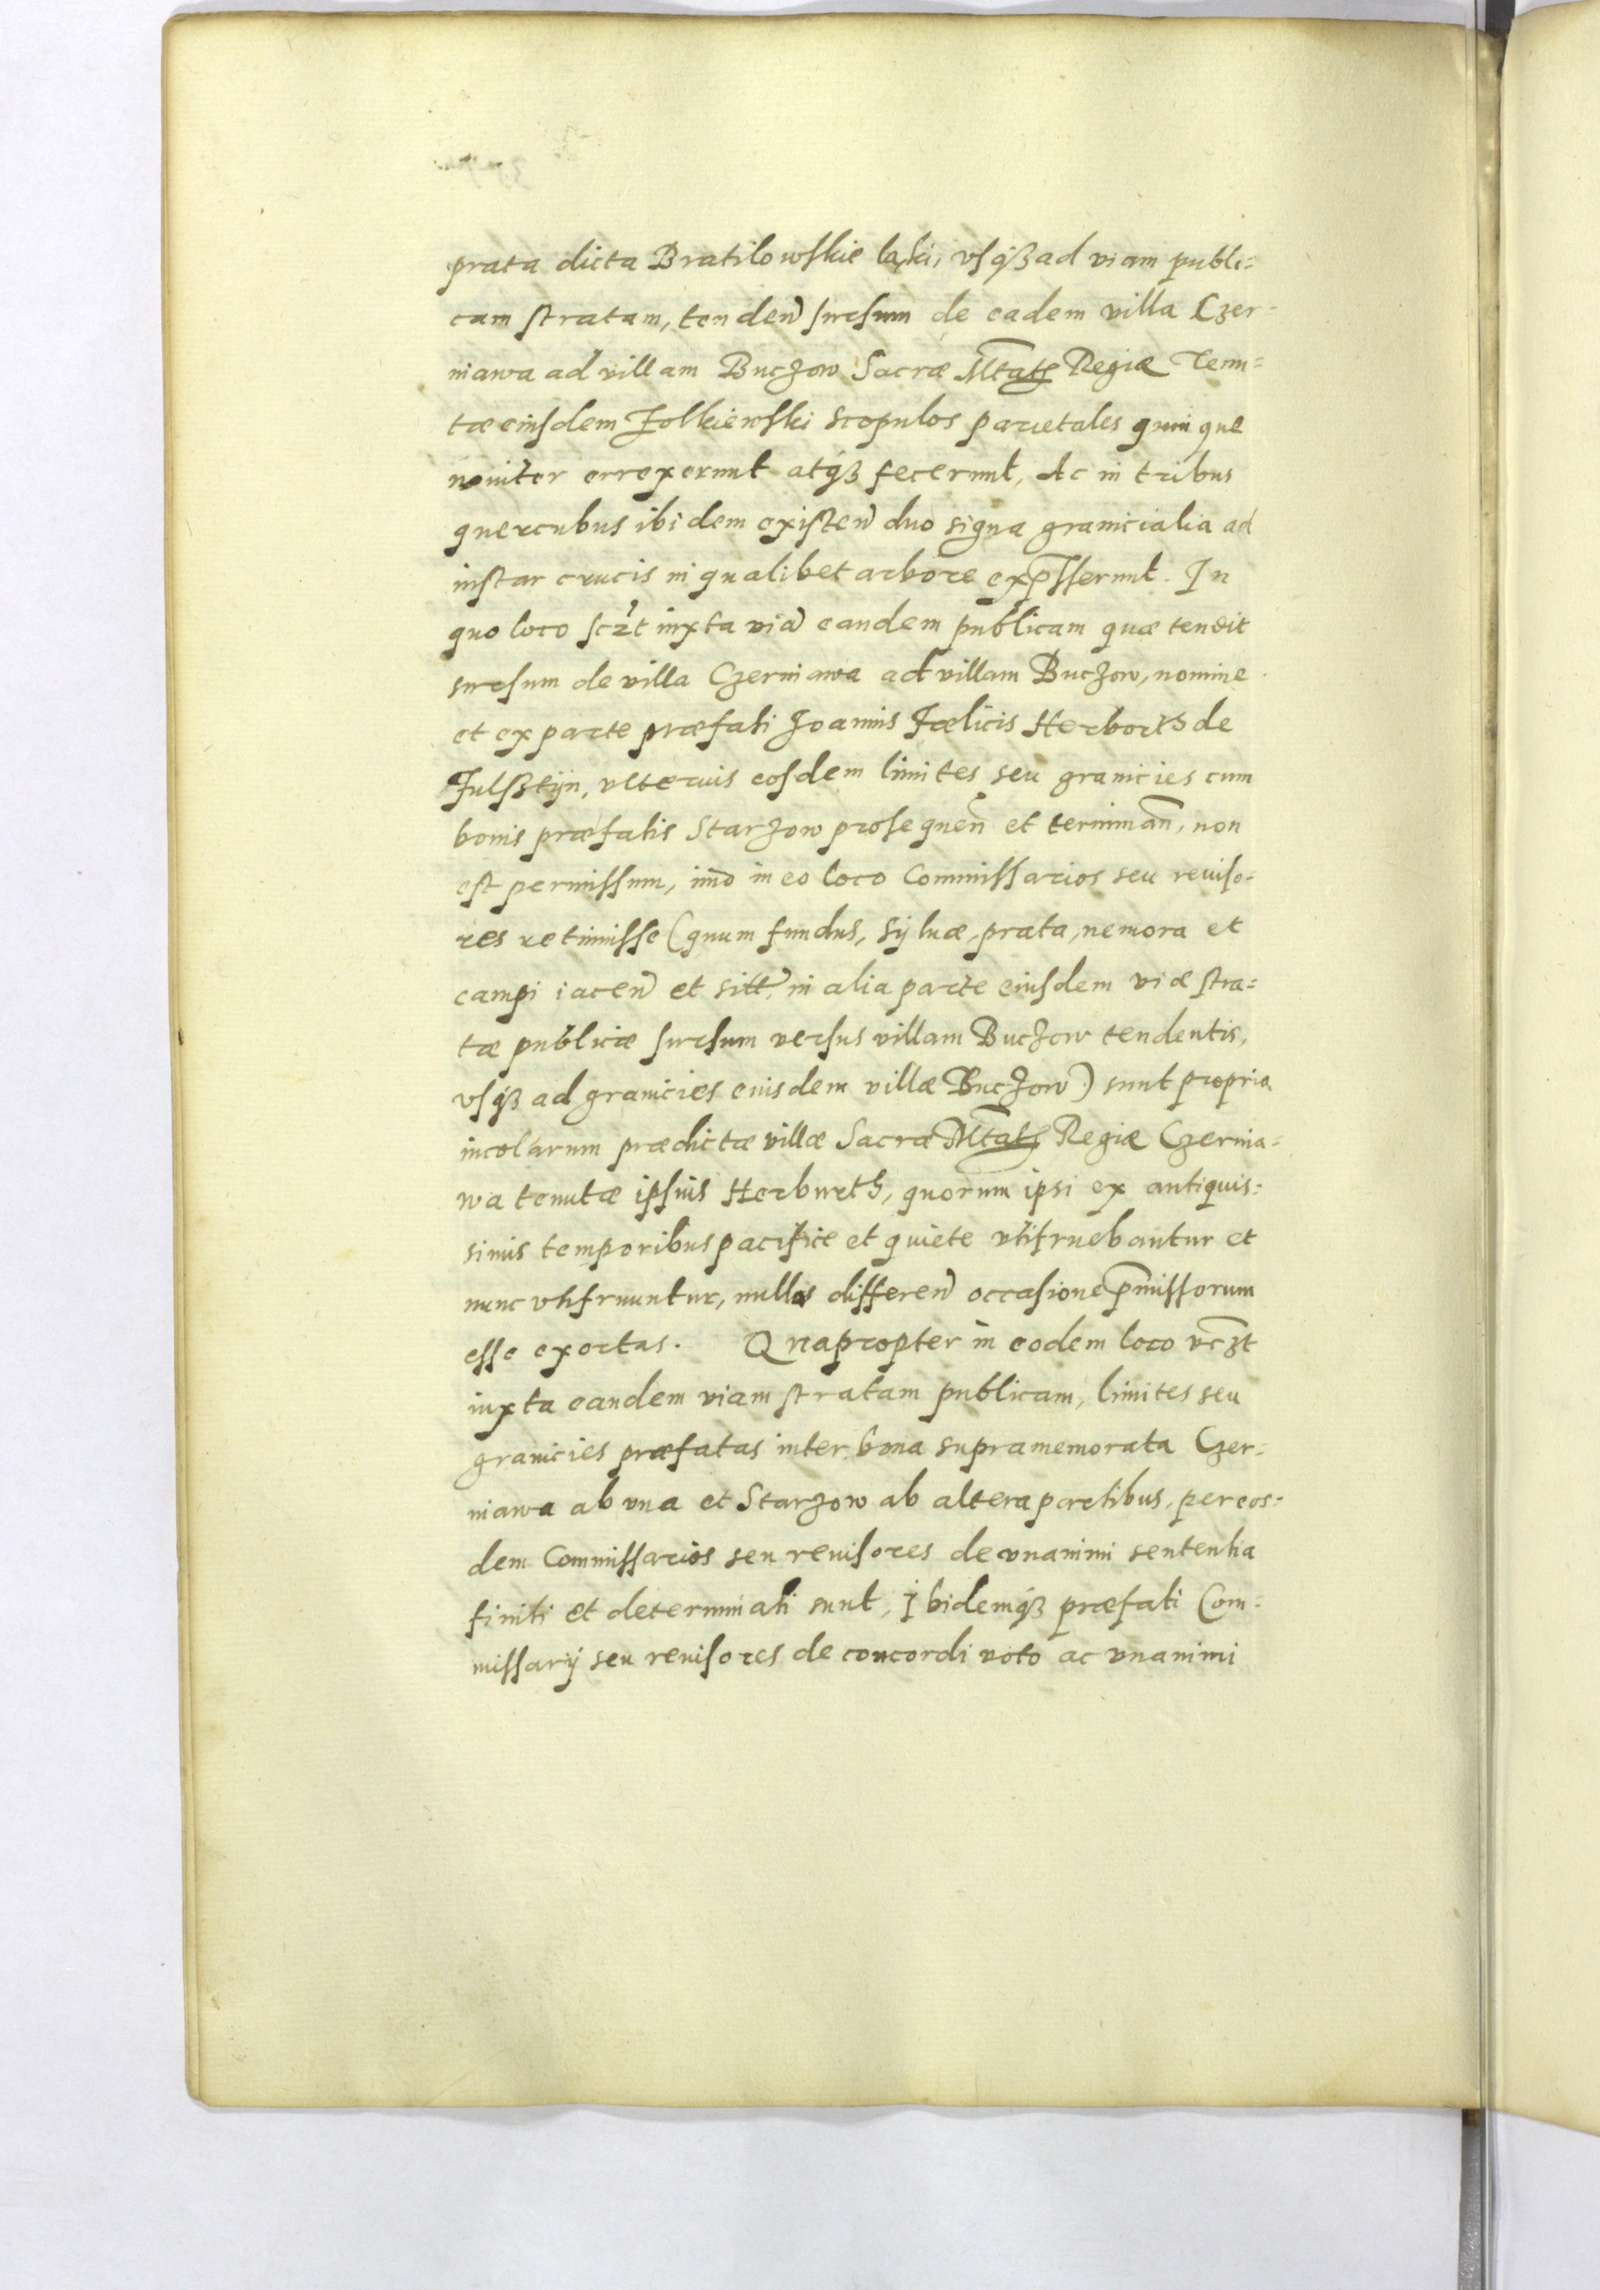 prata dicta Bratilowskie laki, vsq₃ ad viam publi=
cam stratam, tenden̄ sursum de eadem villa Czer-
niawa ad villam Buczow Sacræ Mtatis Regiæ Tenu=
tæ eiusdem Zolkiewski scopulos parietales quinque
noviter errexerunt atq₃ fecerunt, Ac in tribus
quercubus ibidem existen̄ duo signa granicialia ad
instar crucis in qualibet arbore exp̄sserunt. In
quo loco sczt iuxta viā eandem publicam quæ tendit
sursum de villa Czerniawa ad villam Buczow, nomine
et ex parte præfati Joannis Fælicis Herborth de
Fulsztijn, vlterius eosdem limites seu granicies cum
bonis præfatis Starzow prosequen̄ et terminan̄, non
est permissum, imo in eo loco Commissarios seu reuiso-
res retinuisse (quum fundus, syluæ, prata, nemora et
campi iacen̄ et sitt. in alia parte eiusdem viæ stra=
tæ publicæ sursum versus villam Buczow tendentis,
vsq₃ ad granicies eiusdem villæ Buczow) sunt propria
incolarum prædictæ villæ Sacræ Mtatis Regiæ Czernia=
wa tenutæ ipsius Herburth, quorum ipsi ex antiquis=
simis temporibus pacifice et quiete vtifruebantur et
nunc vtifruuntur, nullas differen̄ occasione p̄missorum
esse exortas. Quapropter in eodem loco vczt
iuxta eandem viam stratam publicam, limites seu
granicies præfatas inter bona supramemorata Czer=
niawa ab vna et Starzow ab altera partibus, per eos=
dem Commissarios seu reuisores de vnanimi sententia
finiti et determinati sunt, Ibidemq₃ præfati Com-
missarij seu reuisores de concordi voto ac vnanimi